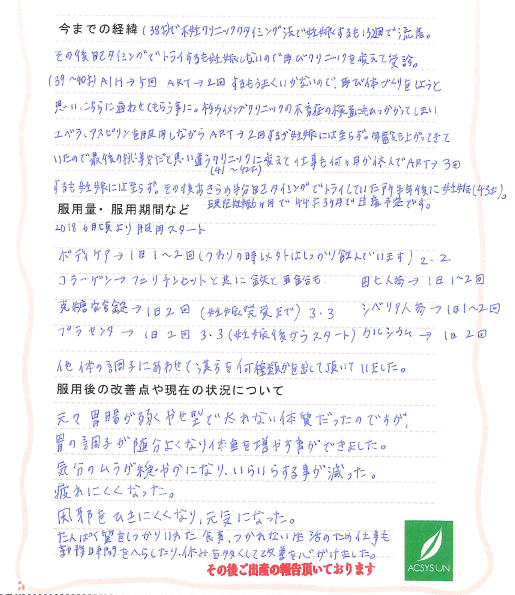 今までの経緯 (38才で不妊クリニックタイミング法で妊娠するも13週で流産。
その後自己タイミングでトライするも妊娠しないので再びクリニックを変えて受診。
(39〜40才) AIH→5回 ART→2回 するもうまくいかないので、再び体づくりをしようと
思いこちらに通わせてもらう事に。クリニックの不育症の検査にもひっかかってしまい
ユベラ、アスピリンを服用しながらART→2回するが妊娠には至らず。上がってきて
いたので最後の だと思い違うクリニックに変えて仕事も何ヶ月か休んでART→3回
(41〜42才)
するも妊娠には至らず。その後あきらめ半分自己タイミングでトライしていた所半年後に妊娠(43才)。
服用量・服用期間など 現在妊娠6ヶ月で44才3ヶ月で出産予定です。
2018 6月頃より服用スタート
ボディケア→1日1〜2回(つわりの時以外はしっかり飲んでいます) 2.2
コラーゲン→フェリチンセットと共に 田七人参→1日1〜2回
1日2回 (妊娠 まで) 3.3 シベリア人参→1日1〜2回
プラセンタ→1日2回 3.3 (妊娠後からスタート) カルシウム→1日2回
他体の調子にあわせて漢方を何種類かを出して頂いていました。
服用後の改善点や現在の状況について
元々胃腸が弱くやせ型で太れない体質だったのですが、
胃の調子が随分よくなり体重を増やす事ができました。
気分のムラが穏やかになり、いらいらする事が減った。
疲れにくくなった。
風邪をひきにくくなり、元気になった。
たんぱく質をしっかりいれた食事、つかれない生活のため仕事も
時間をへらしたり、休みを多くして改善を心がけました。
その後ご出産の報告頂いております
ACSYSUN